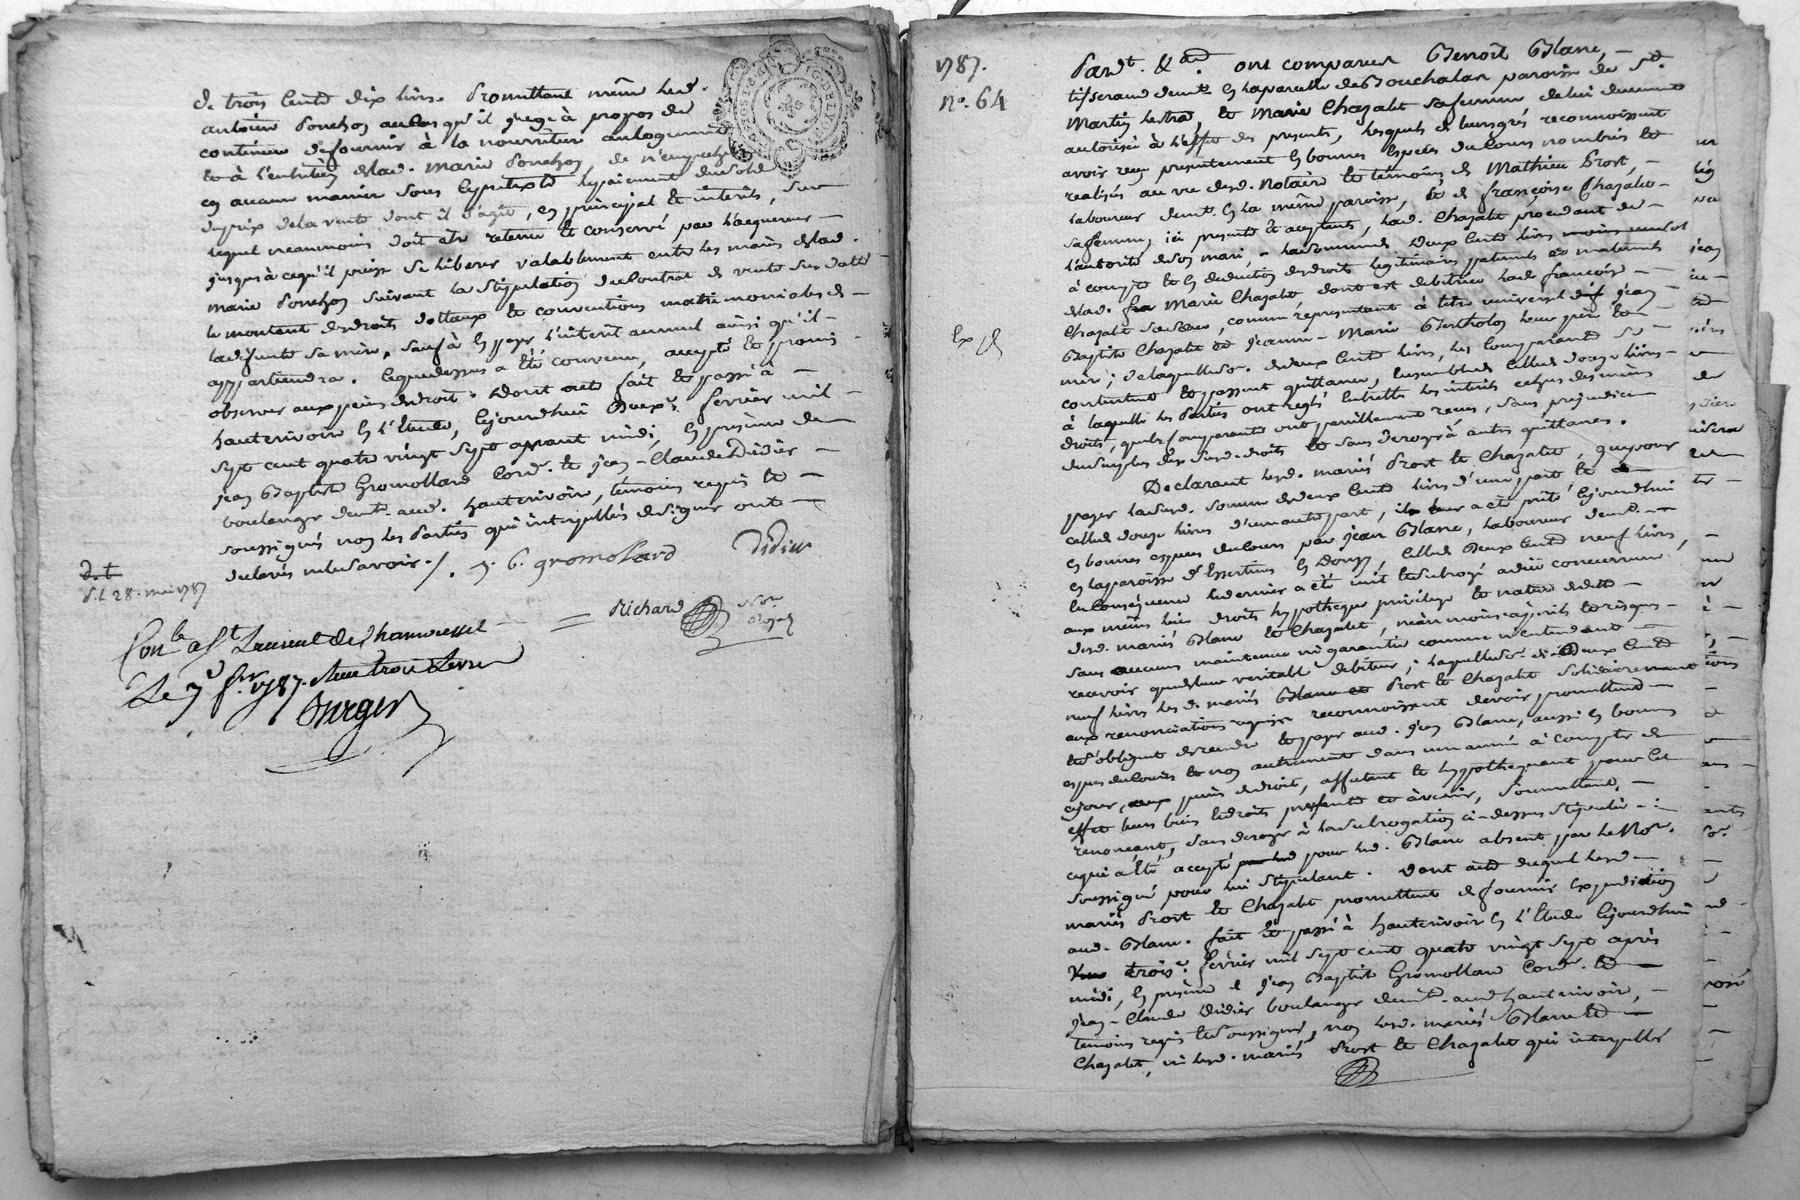 de trois cents dix livres. Promettant même led.
antoine Ponchon au cas qu'il juge à propos de
continuer de fournir à la nourriture au logement
et à l'entretien de lad. Marie Ponchon, de n'empecher
en aucune maniere sous le pretexte le paiement du solde
du prix de la vente dont il s'agit, en principal et interêts, 
lequel neanmoins doit etre retenu et conservé par l'acquereur
jusques à ce qu'il puisse se liberer valablement entre les mains de lad.
Marie Ponchon suivant la stipulation du Contrat de vente
le montant des droits dottaux et conventions matrimoniales de
la defunte sa mère, sauf à en payer l'interêt annuel ainsi qu'il
appartiendra. Ce que dessus a été convenu, accepté et promis
observer aux peines de droit. Dont acte fait et passé à
hauterivoire en l'Etude, cejourd'hui deuxe. fevrier mil
sept cent quatre vingt sept avant midi, en presence de
jean Baptiste Gromollard Cordr. et jean-Claude Didier
boulanger demt. aud. hauterivoire, témoins requis et
soussignés non les Parties qui interpellées de signer ont
declarés ne le savoir ./. j. b. gromolard didier
d. t
d. t. 28. mai 1787
Richard Nore. Royal
Conle. a St Laurent de Chamousset
Le 7 fr. 1787.
Burger
1787.
No. 64
Pardt. &a. ont comparu Benoît Blanc,
tisserand demt. en la parcelle de Bouchalas paroisse de St.
Martin Lestra, et Marie Chazalet sa femme de lui duement
autorisée à l'effet des presentes, lesquels de leurs grés reconnoissent
avoir reçu presentement en bonnes Especes du Cours nombrées et
realisées au vu desd. Notaire et témoins de Mathieu Prost,
laboureur demt. en la même paroisse, et de françoise Chazalet
sa femme, ici presents et acceptants, lad. Chazalet procedant de
l'autorité de son mari, la somme de Deux Cents livres
à compte et en deduction des droits legitimaires paternels et maternels
de lad. Marie Chazalet dont est debitrice lad. françoise
Chazalet sa sœur, comme representant à titre universel jean
Baptiste Chazalet et jeanne-Marie Bertholon leur père et
mere; de laquelle so. de deux cents livres, les Comparants se
contentent et passent quittance, Ensemble de Celle de douze livres
à laquelle les Parties ont reglé Entre elles les interêts echus desmêmes
droits, que les Comparants ont pareillement reçus, sans prejudice
du surplus desd. droits et sans deroger à autres quittances.
Ex. d.
Declarent lesd. mariés Prost et Chazalet, que pour
payer lad. somme de deux Cents livres d'une part et
celle de douze livres d'une autre part, il leur a été prêté cejourd'hui
en bonnes especes du Cours par jean Blanc, laboureur demt.
en la paroisse d'Essertines en Donzy, Celle de Deux Cents neuf livres,
En Conséquence ce dernier a été mis et subrogé à due concurrence
aux mêmes lieu droits hypotheque privilege et nature de dette
desd. mariés Blanc et Chazalet, neanmoins à ses perils et risques
sans aucune maintenue ni garantie comme n'entendent
recevoir que de leur veritable debiteur; laquelle so. de Deux Cents
neuf livres lesd. mariés Prost et Chazalet solidairement
aux renonciations requises reconnoissent devoir promettent
et s'obligent de rendre et payer aud. jean Blanc, aussi en bonnes
especes du Cours et non autrement dans une année à compter de
ce jour, aux peines de droit, affectant et hypothequant pour cet
effet leurs biens et droits presents et à venir, soumettant,
renonçant, sans deroger à la subrogation ci-dessus stipulée
ce qui a été accepté pour led. Blanc absent par le Nore.
soussigné pour lui stipulant. Dont acte duquel lesd.
mariés Prost et Chazalet promettent de fournir Expedition
aud. Blanc. fait et passé à hauterivoire en l'Etude cejourd'hui
troise. fevrier mil sept cent quatre vingt sept après
midi, en presence de jean Baptiste Gromollard Cordr. et
jean-Claude Didier boulanger demts. aud hauterivoire,
témoins requis et soussignés, non lesd. mariés Blanc et
Chazalet, ni lesd. mariés Prost et Chazalet qui interpellés